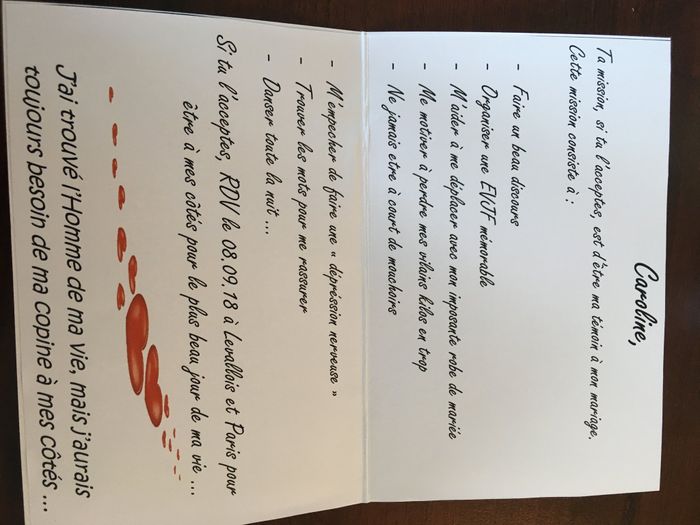 Caroline,
Ta mission, si tu l'acceptes, est d'être ma témoin à mon mariage.
Cette mission consiste à :
- Faire un beau discours
- Organiser une EVJF mémorable
- M'aider à me déplacer avec mon imposante robe de mariée
- Me motiver à perdre mes vilains kilos en trop
- Ne jamais etre à court de mouchoirs
- M'empecher de faire une « dépression nerveuse »
- Trouver les mots pour me rassurer
- Danser toute la nuit ...
Si tu l'acceptes, RDV le 08.09.18 à Levallois et Paris pour
être à mes côtés pour le plus beau jour de ma vie ...
J'ai trouvé l'Homme de ma vie, mais j'aurais
toujours besoin de ma copine à mes côtés ...